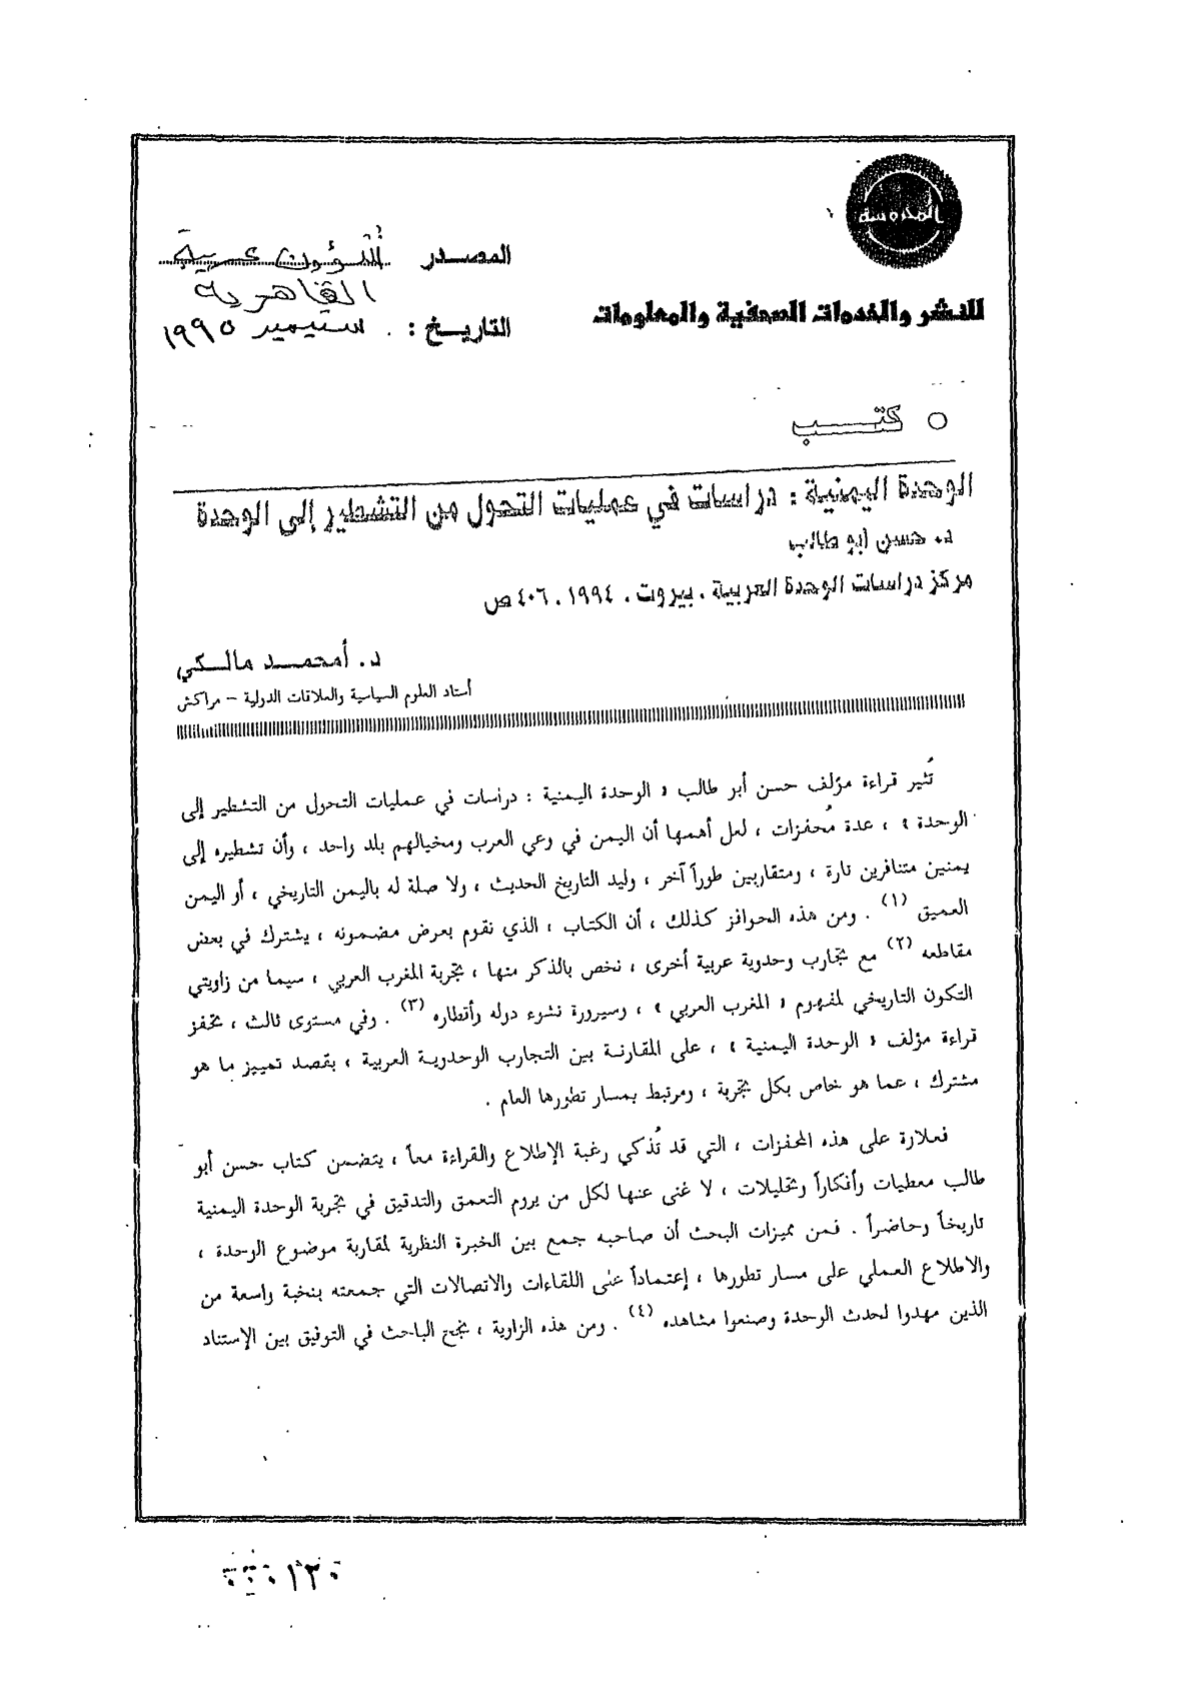 المحروسة
للنشر والخدمات الصحفية والمعلومات
المصدر شئون عربية
القاهرية
التاريخ : سبتمبر ١٩٩٥
○ كتب
الوحدة اليمنية : دراسات في عمليات التحول من التشطير إلى الوحدة
د. حسن أبو طالب
مركز دراسات الوحدة العربية ، بيروت ، ١٩٩٤ ، ٤٠٦ ص
د. أمحمد مالكي
أستاذ العلوم السياسية والعلاقات الدولية – مراكش
تُثير قراءة مؤلف حسن أبو طالب « الوحدة اليمنية : دراسات في عمليات التحول من التشطير إلى
الوحدة » ، عدة مُحفزات ، لعل أهمها أن اليمن في وعي العرب ومخيالهم بلد واحد ، وأن تشطيره إلى
يمنين متنافرين تارة ، ومتقاربين طوراً آخر ، وليد التاريخ الحديث ، ولا صلة له باليمن التاريخي ، أو اليمن
العميق (١) . ومن هذه الحوافز كذلك ، أن الكتاب ، الذي نقوم بعرض مضمونه ، يشترك في بعض
مقاطعه (٢) مع تجارب وحدوية عربية أخرى ، نخص بالذكر منها ، تجربة المغرب العربي ، سيما من زاويتي
التكون التاريخي لمفهوم « المغرب العربي » ، وسيرورة نشوء دوله وأقطاره (٣) . وفي مستوى ثالث ، تحفز
قراءة مؤلف « الوحدة اليمنية » ، على المقارنة بين التجارب الوحدوية العربية ، بقصد تمييز ما هو
مشترك ، عما هو خاص بكل تجربة ، ومرتبط بمسار تطورها العام .
فعلاوة على هذه المحفزات ، التي قد تُذكي رغبة الإطلاع والقراءة معاً ، يتضمن كتاب حسن أبو
طالب معطيات وأفكاراً وتحليلات ، لا غنى عنها لكل من يروم التعمق والتدقيق في تجربة الوحدة اليمنية
تاريخاً وحاضراً . فمن مميزات البحث أن صاحبه جمع بين الخبرة النظرية لمقاربة موضوع الوحدة ،
والاطلاع العملي على مسار تطورها ، إعتماداً على اللقاءات والاتصالات التي جمعته بنخبة واسعة من
الذين مهدوا لحدث الوحدة وصنعوا مشاهده (٤) . ومن هذه الزاوية ، نجح الباحث في التوفيق بين الإستناد